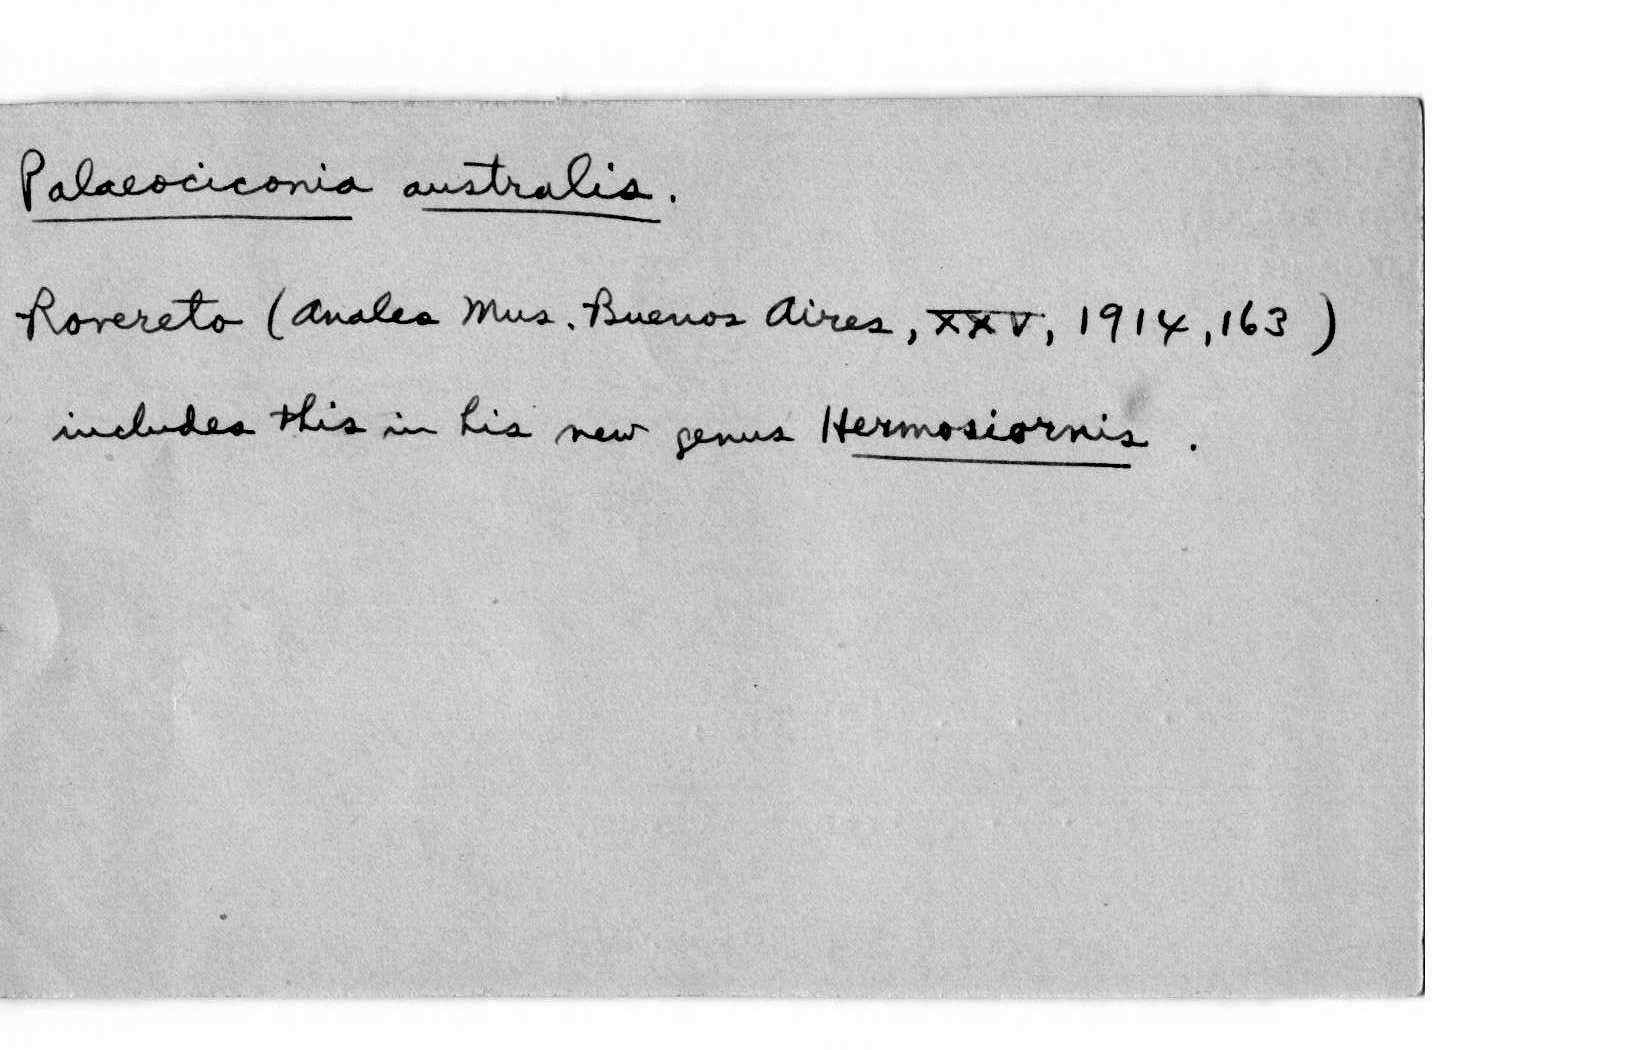 Palaeociconia australis.
Rovereto (Anales Mus. Buenos Aires, XXV, 1914, 163)
includes this in his new genus Hermosiornis.